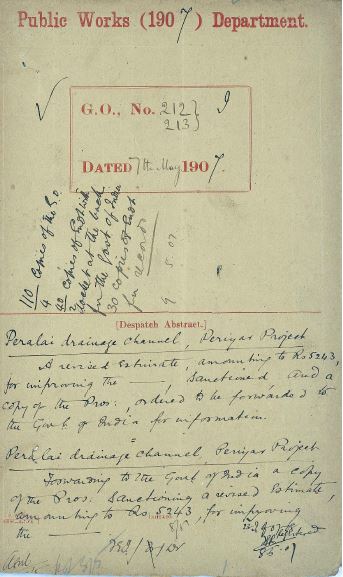 Public Works (1907) Department.
G.O., No. 212}
213} I
DATED 7th May 1907.
110 Copies of the G.O.
4
20 copies of
docket at the back
for the Govt of India
30 copies of each
for record
9 5. 07
[Despatch Abstract.]
Peralai drainage channel, Periyar Project
A revised Estimate, amounting to Rs 5243,
for improving the ——, Sanctioned and a
copy of the Pros: ordered to be forwarded to
the Govt of India for information.
Peralai drainage channel, Periyar Project
Forwarding to the Govt of India a copy
of the Pros. Sanctioning a revised Estimate,
amounting to Rs 5243, for improving
the ——
8/5
8.5.07